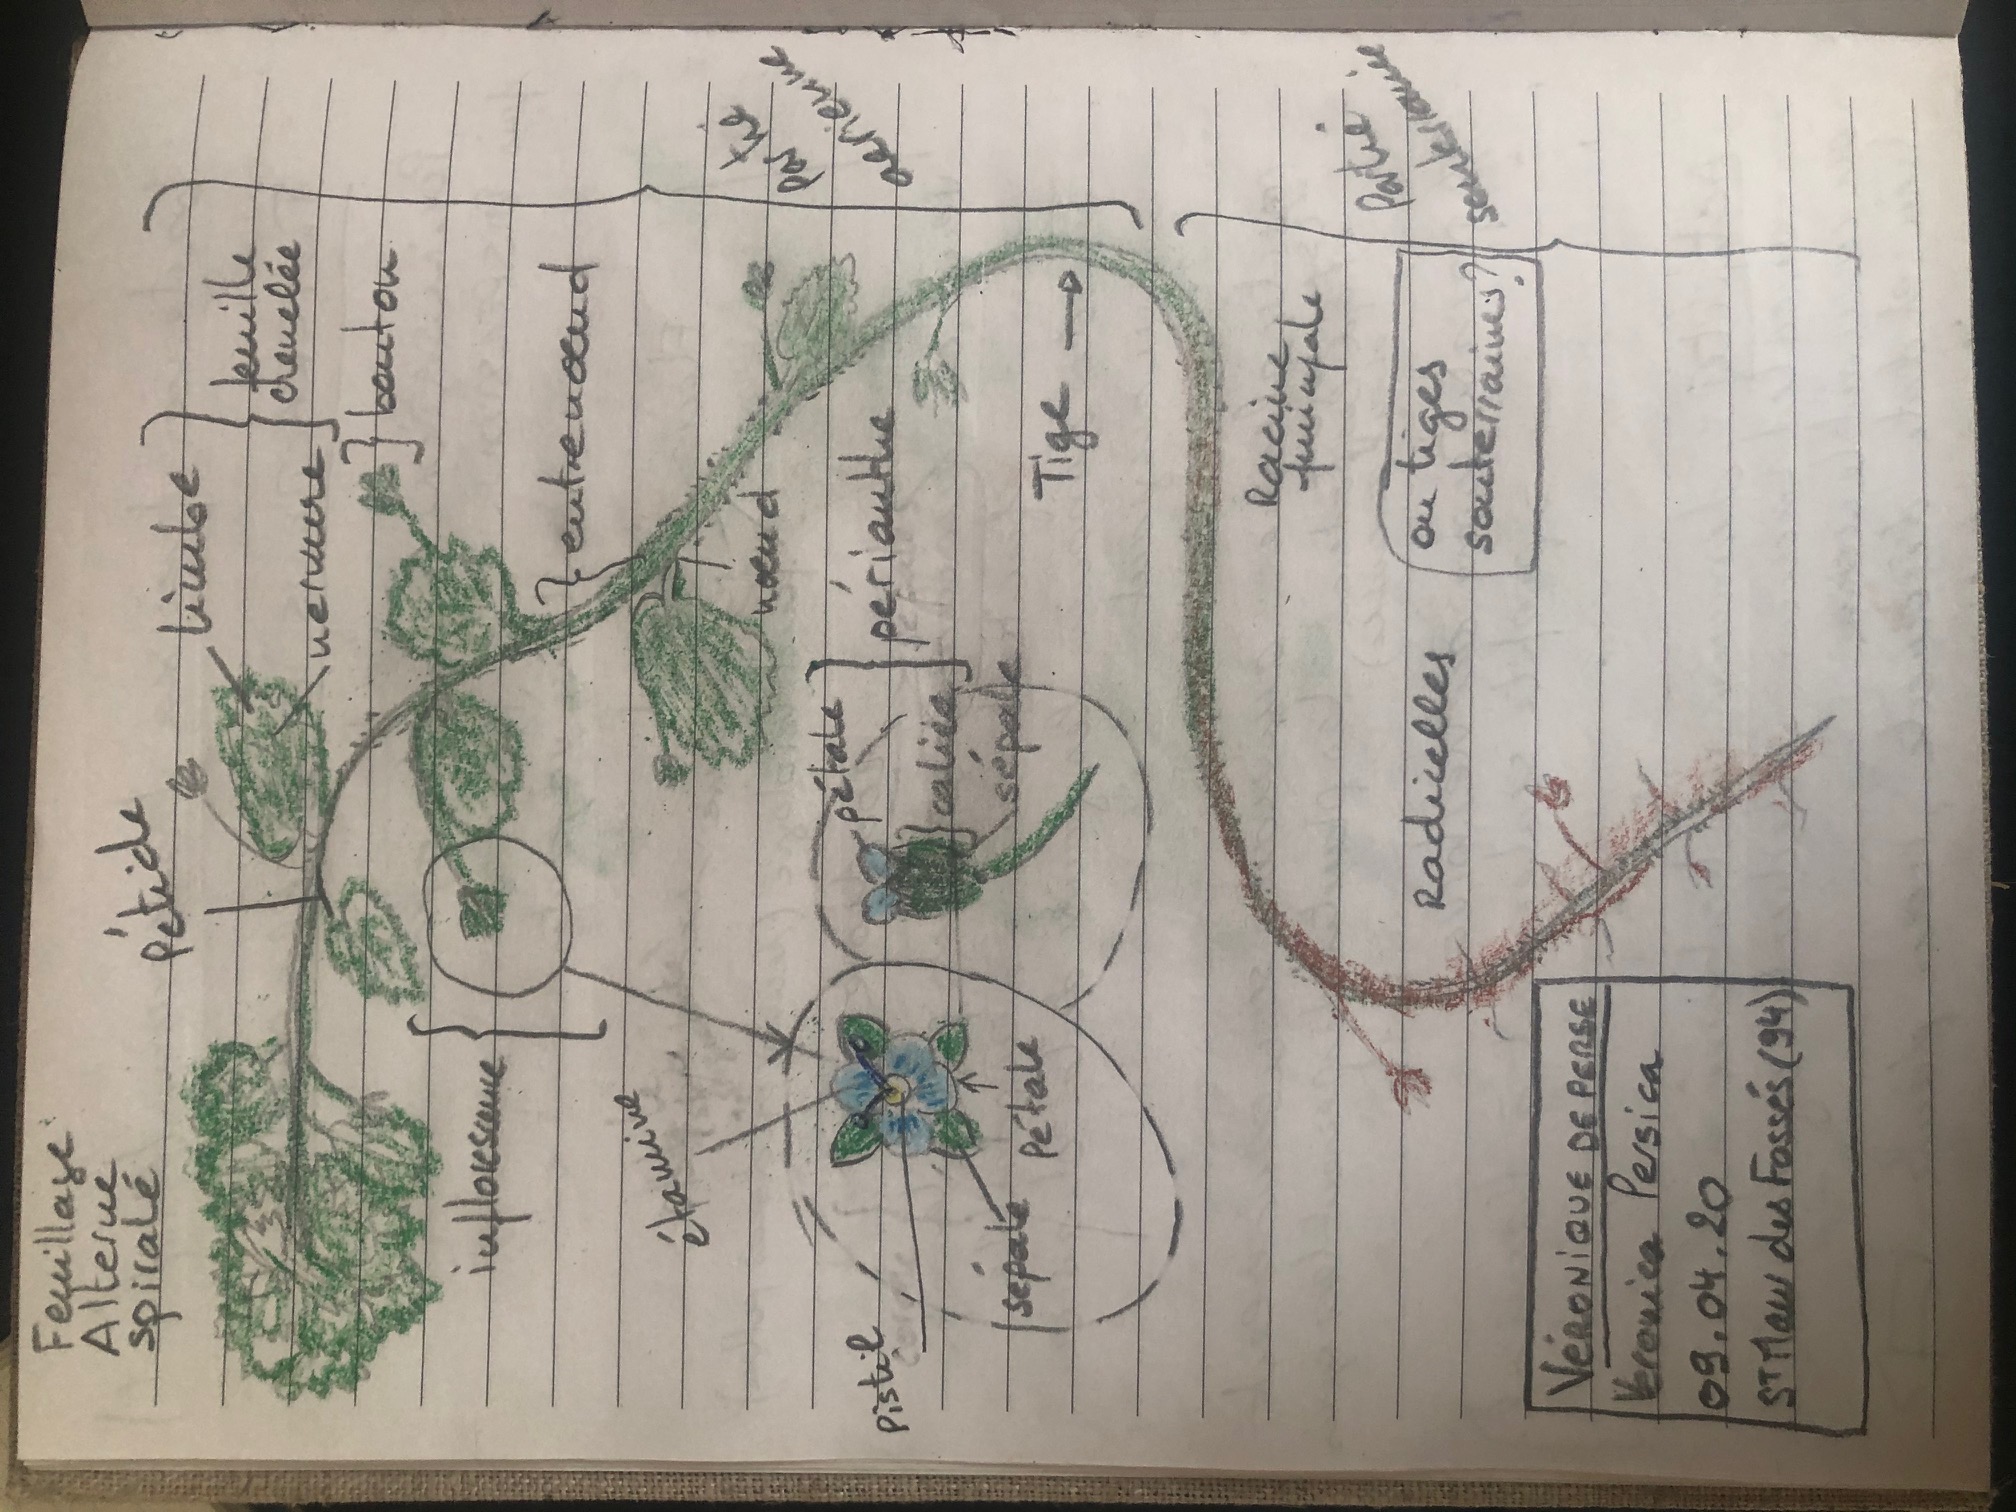 Feuillage
Alterne
spiralé
Pétiole
limbe
nervure
feuille
crenelée
bouton
inflorescence
entrenœud
nœud
étamine
Pistil
sépale
Pétale
pétale
calice
sépale
périanthe
Tige
aérienne
Racine
ou tiges
souterrains?
Partie
Radicelles
VÉRONIQUE DE PERSE
Veronica Persica
09.04.20
ST Maur des Fossés (94)